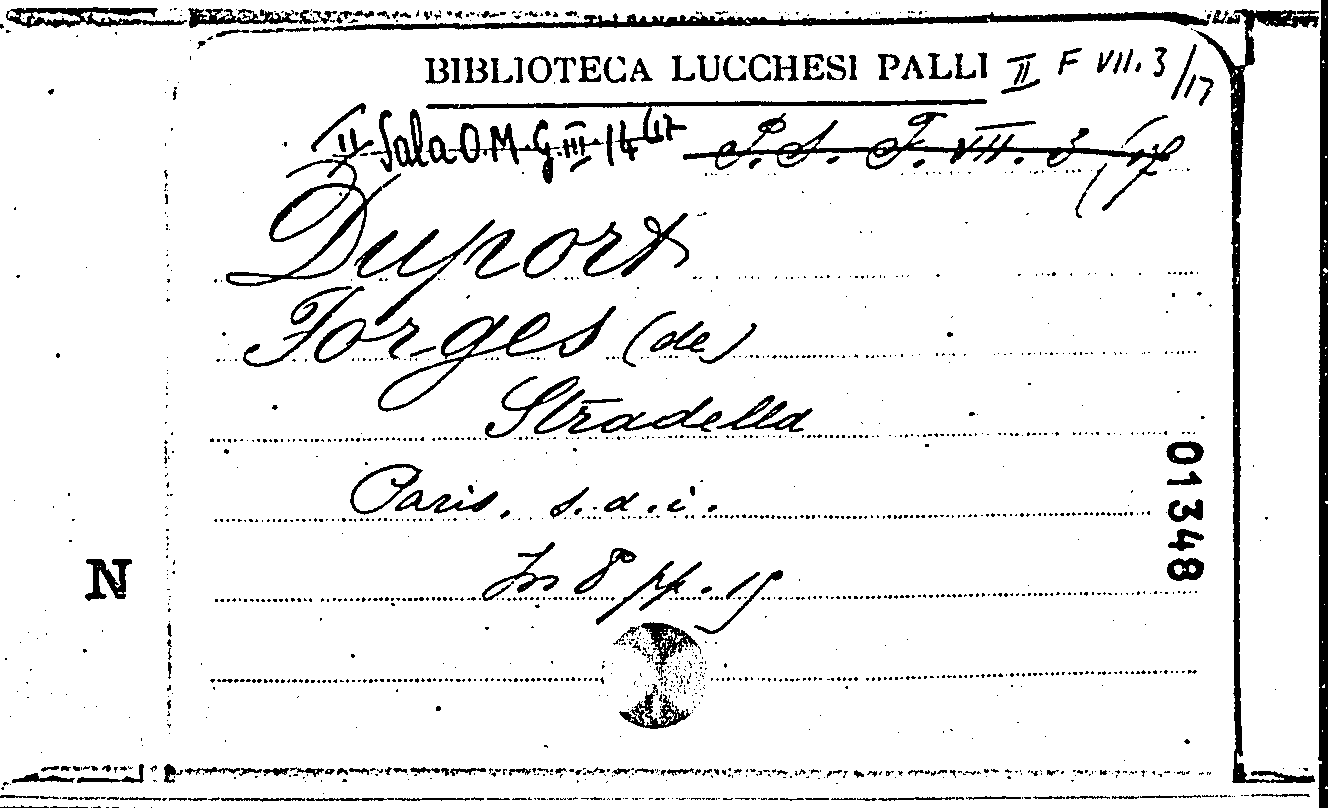 BIBLIOTECA LUCCHESI PALLI II F VII. 3/17
II Sala O.M. G. III 14 (17 P. S. F. VII. 3 (17
Duport
Forges (de)
Stradella
Paris. s. d. i.
In 8° pp. 15
N
01348